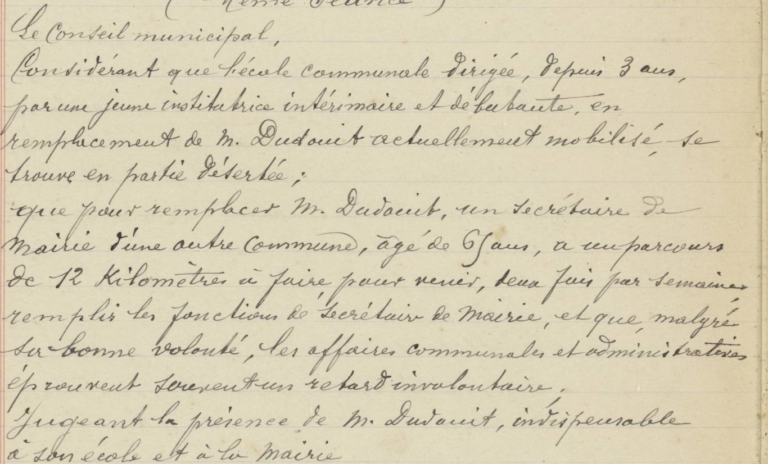 (même séance)
Le Conseil municipal,
Considérant que l'école communale dirigée, depuis 3 ans,
par une jeune institutrice intérimaire et débutante, en
remplacement de M. Dudouit actuellement mobilisé, se
trouve en partie désertée ;
que pour remplacer M. Dudouit, un secrétaire de
Mairie d'une autre Commune, âgé de 65 ans, a un parcours
de 12 Kilomètres à faire pour venir, deux fois par semaine,
remplir les fonctions de secrétaire de Mairie, et que, malgré
sa bonne volonté, les affaires communales et administratives
éprouvent souvent un retard involontaire.
Jugeant la présence de M. Dudouit, indispensable
à son école et à la Mairie